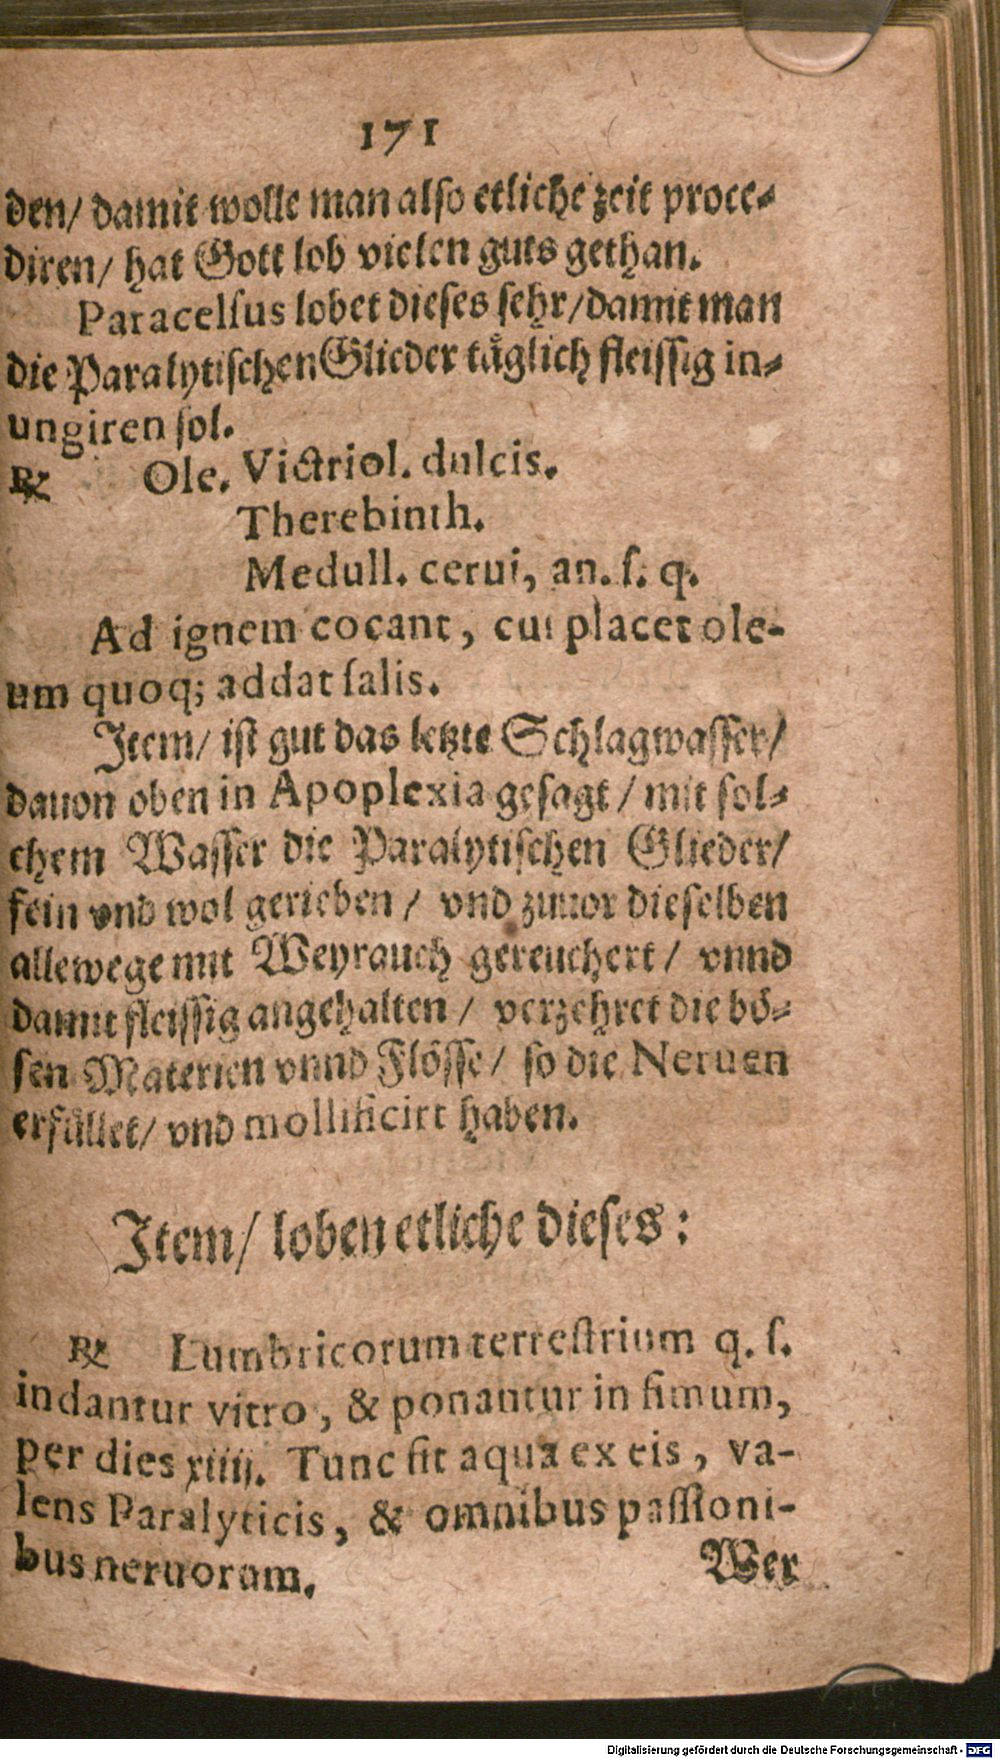 171
den/ damit wolle man also etliche zeit proce-
diren/ hat Gott lob vielen guts gethan.
Paracelsus lobet dieses sehr/damit man
die Paralytischen Glieder täglich fleissig in-
ungiren sol.
℞ Ole. Victriol. dulcis.
Therebinth.
Medull. cerui, an. s. q.
Ad ignem cocant, cui placet ole-
um quoq; addat salis.
Item/ ist gut das letzte Schlagwasser/
dauon oben in Apoplexia gesagt / mit sol-
chem Wasser die Paralytischen Glieder/
fein vnd wol gerieben / vnd zuuor dieselben
allewege mit Weyrauch gereuchert / vnnd
damit fleissig angehalten / verzehret die bö-
sen Materien vnnd Flösse / so die Neruen
erfüllet/ vnd mollificirt haben.
Item/ loben etliche dieses:
℞ Lumbricorum terrestrium q. s.
indantur vitro, & ponantur in fimum,
per dies xiiij. Tunc fit aqua ex eis, va-
lens Paralyticis, & omnibus passioni-
bus neruorum.
Wer
Digitalisierung gefördert durch die Deutsche Forschungsgemeinschaft - DFG